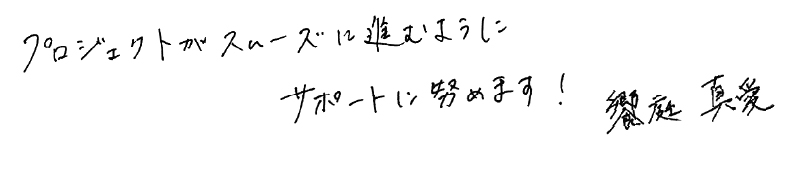 プロジェクトがスムーズに進むように
サポートに努めます! 饗庭 真愛